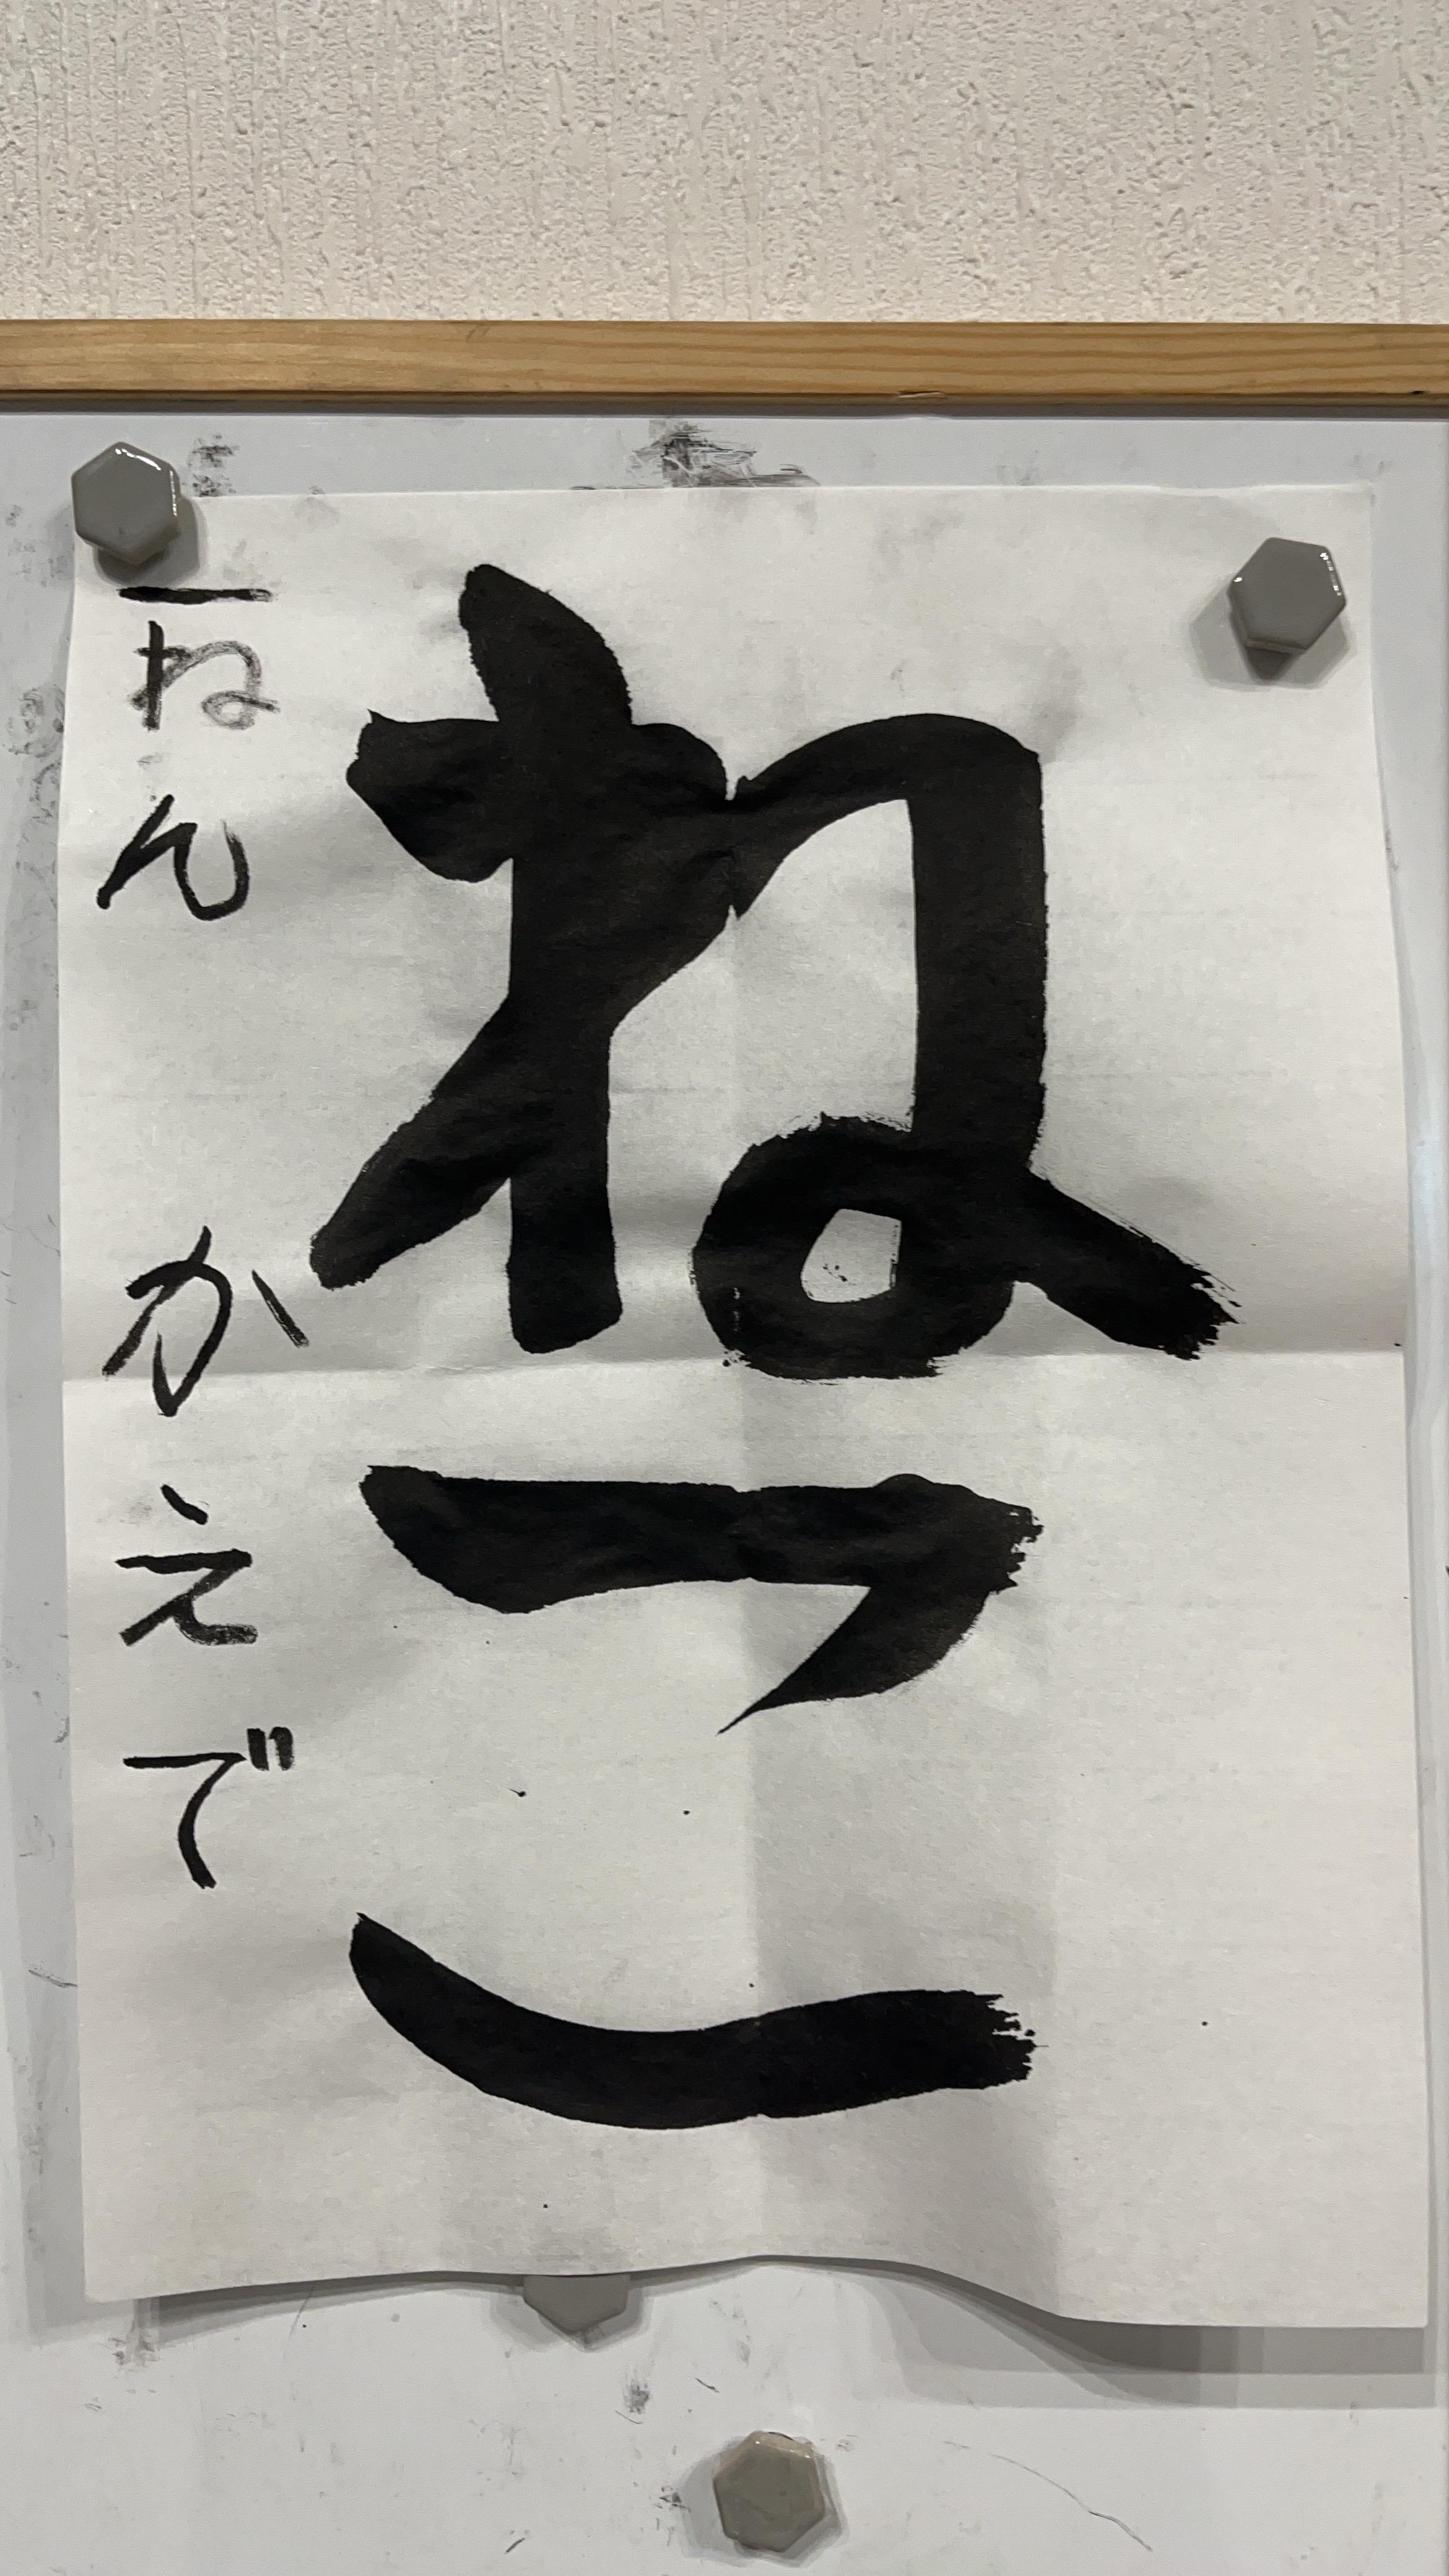 ねこ
一ねん かえで